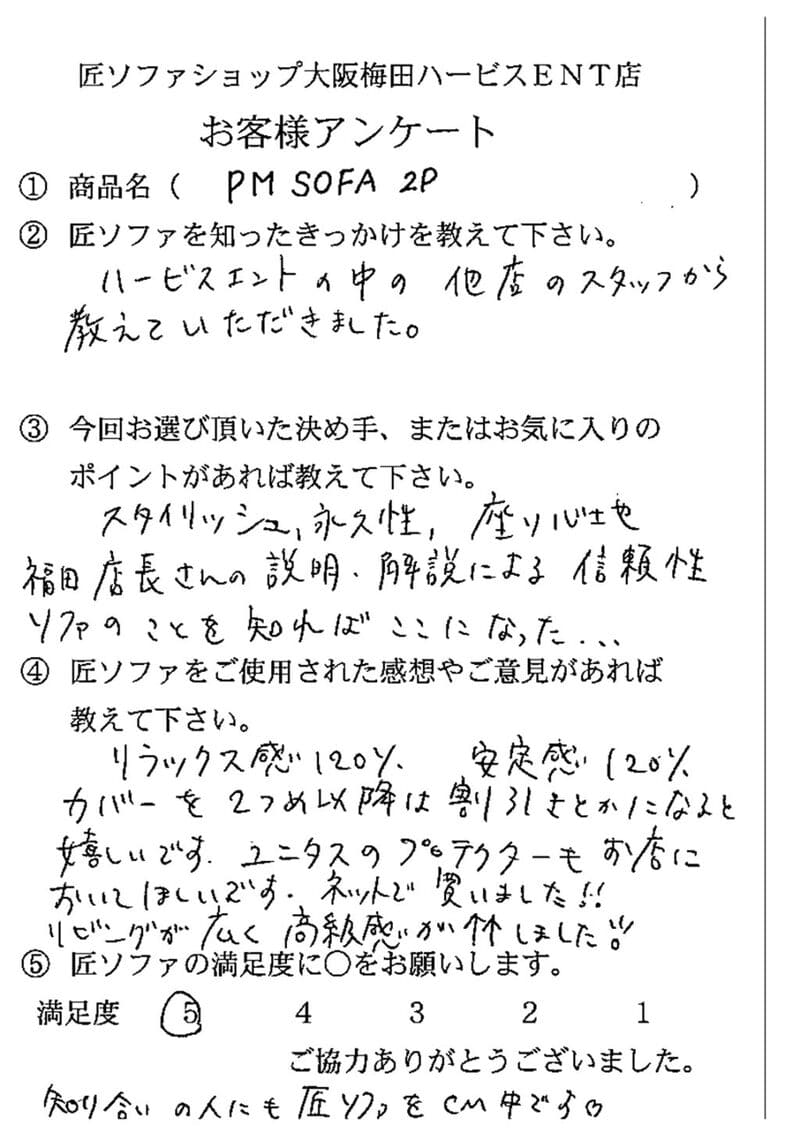 匠ソファショップ大阪梅田ハービスENT店
お客様アンケート
① 商品名（ PM SOFA 2P ）
② 匠ソファを知ったきっかけを教えて下さい。
ハービスエントの中の他店のスタッフから
教えていただきました。
③ 今回お選び頂いた決め手、またはお気に入りの
ポイントがあれば教えて下さい。
スタイリッシュ,永久性,座り心地
福田店長さんの説明・解説による信頼性
ソファのことを知ればここになった...
④ 匠ソファをご使用された感想やご意見があれば
教えて下さい。
リラックス感120% 安定感120%
カバーを2つめ以降は割引きとかになると
嬉しいです.ユニタスのプロテクターもお店に
おいてほしいです.ネットで買いました!!
リビングが広く高級感が増しました!!
⑤ 匠ソファの満足度に〇をお願いします。
満足度 5 4 3 2 1
ご協力ありがとうございました。
知り合いの人にも匠ソファをCM中です♡